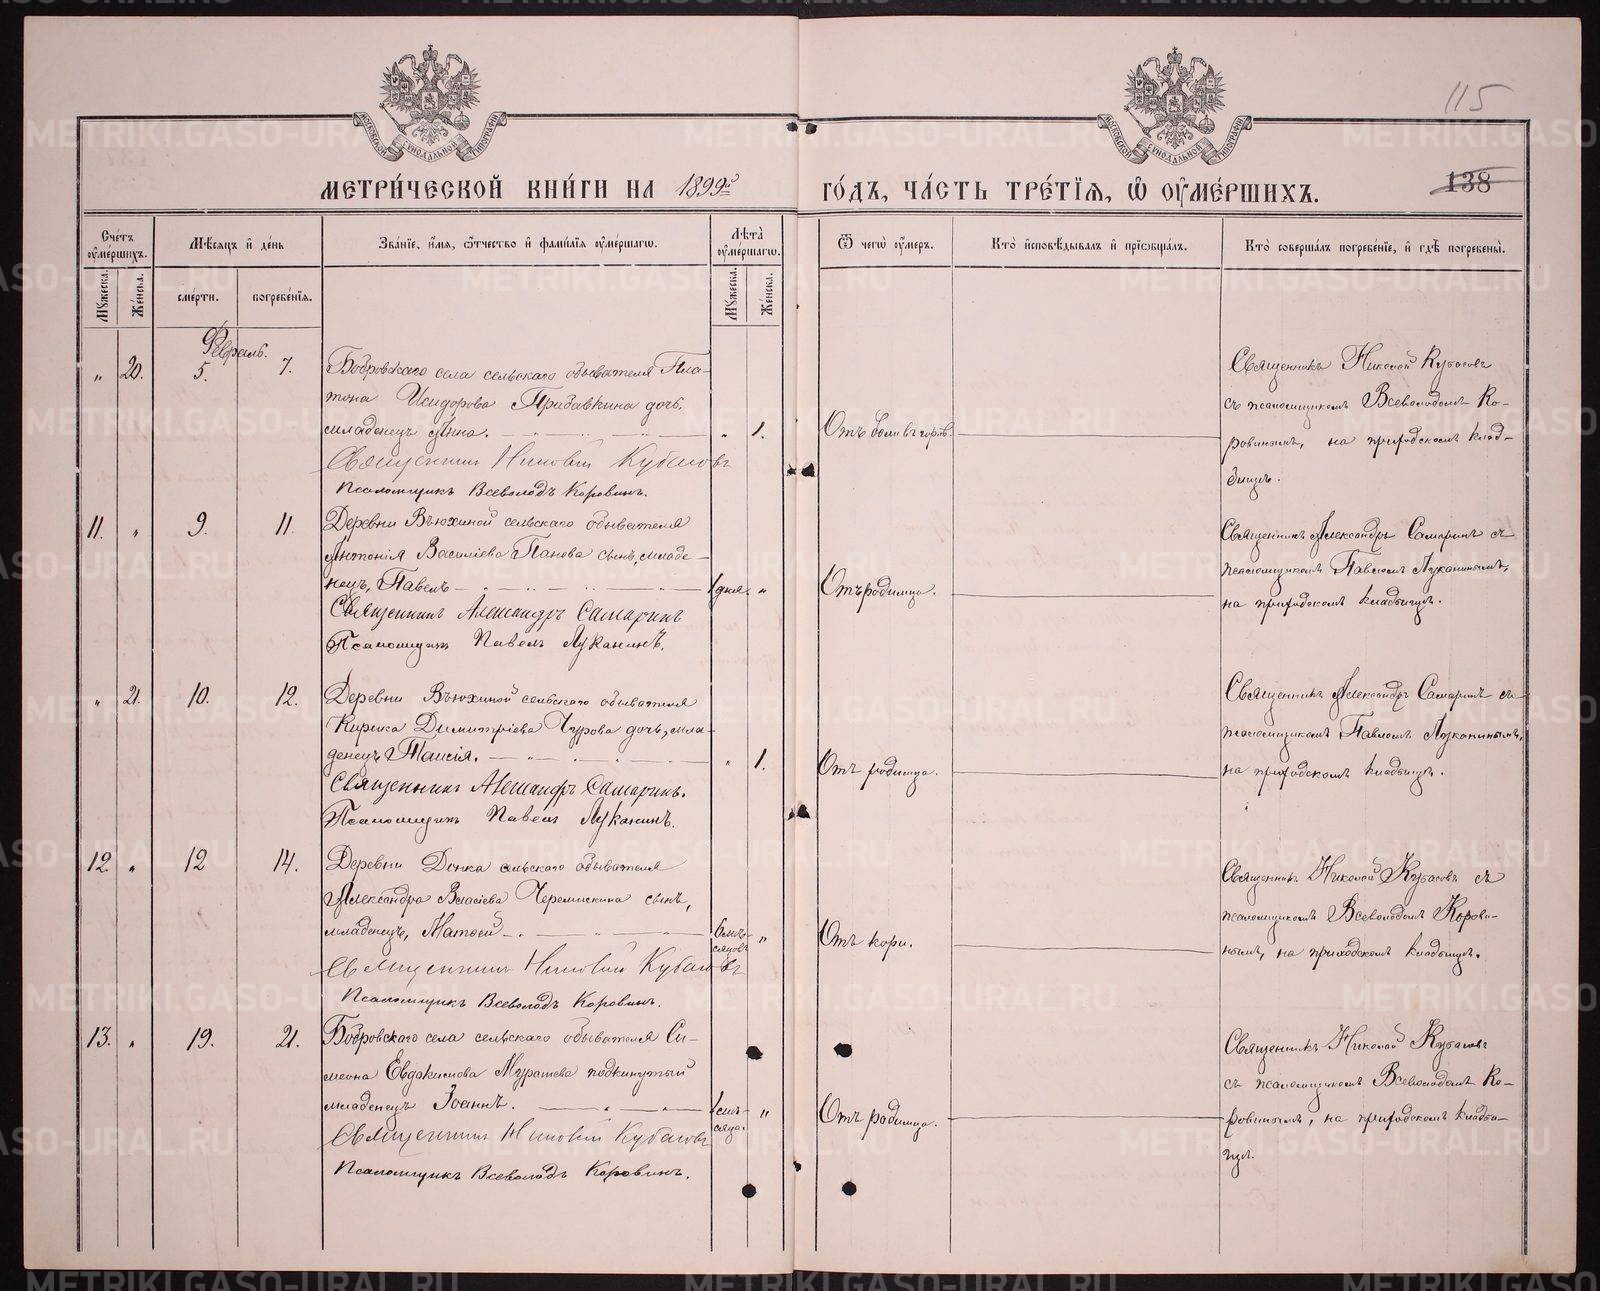 115
138
МЕТРИ́ЧЕСКОЙ КНИ́ГИ НА 1899й ГО́ДЪ, ЧА́СТЬ ТРЕ́ТІѦ, Ѽ ОУМЕ́РШИХЪ.
Сче́тъ оумершихъ.
Мѣсяцъ и де́нь
Зва́ніе, и́мя, ѻтчество и фами́лія оуме́ршагѡ.
Лѣта̀ оуме́ршагѡ.
Ѿ чегѡ̀ оу́меръ.
Кто̀ исповѣ́дывалъ и прїѡбща́лъ.
Кто̀ соверша́лъ погребе́ніе, и гдѣ̀ погребены̀.
Мꙋжеска.
Же́нска.
сме́рти.
погребе́нія.
Мꙋжеска.
Же́нска.
Февраль.
„ 20. 5. 7.
Бобровскаго села сельскаго обывателя Пла-
тона Исидорова Придавкина дочь,
младенецъ Анна. „ 1.
Священникъ Николай Кубасовъ
Псаломщикъ Всеволодъ Коровинъ.
Отъ боли въ горлѣ.
Священникъ Николай Кубасовъ
съ псаломщикомъ Всеволодомъ Ко-
ровинымъ, на приходскомъ клад-
бищѣ.
11. „ 9. 11.
Деревни Вьюхиной сельскаго обывателя
Антонія Василіева Панова сынъ, младе-
нецъ, Павелъ 1 дня. „
Священникъ Александръ Самаринъ
Псаломщикъ Павелъ Луканинъ.
Отъ родимца.
Священникъ Александръ Самаринъ съ
псаломщикомъ Павломъ Луканинымъ,
на приходскомъ кладбищѣ.
„ 21. 10. 12.
Деревни Вьюхиной сельскаго обывателя
Кирика Димитріева Чурова дочь, мла-
денецъ Таисія. „ 1.
Священникъ Александръ Самаринъ.
Псаломщикъ Павелъ Луканинъ.
Отъ родимца.
Священникъ Александръ Самаринъ съ
псаломщикомъ Павломъ Луканинымъ,
на приходскомъ кладбищѣ.
12. „ 12 14.
Деревни сельскаго обывателя
Александра Власіева Черемискина сынъ,
младенецъ, Матѳей 6 мѣ-
сяцовъ „
Священникъ Николай Кубасовъ
Псаломщикъ Всеволодъ Коровинъ.
Отъ кори.
Священникъ Николай Кубасовъ съ
псаломщикомъ Всеволодомъ Корови-
нымъ, на приходскомъ кладбищѣ.
13. „ 19. 21.
Бобровскаго села сельскаго обывателя Си-
меона Евдокимова Мурашева подкинутый
младенецъ Іоаннъ. 1 мѣ-
сяца. „
Священникъ Николай Кубасовъ
Псаломщикъ Всеволодъ Коровинъ.
Отъ родимца.
Священникъ Николай Кубасовъ
съ псаломщикомъ Всеволодомъ Ко-
ровинымъ, на приходскомъ кладби-
щѣ.
METRIKI.GASO-URAL.RU